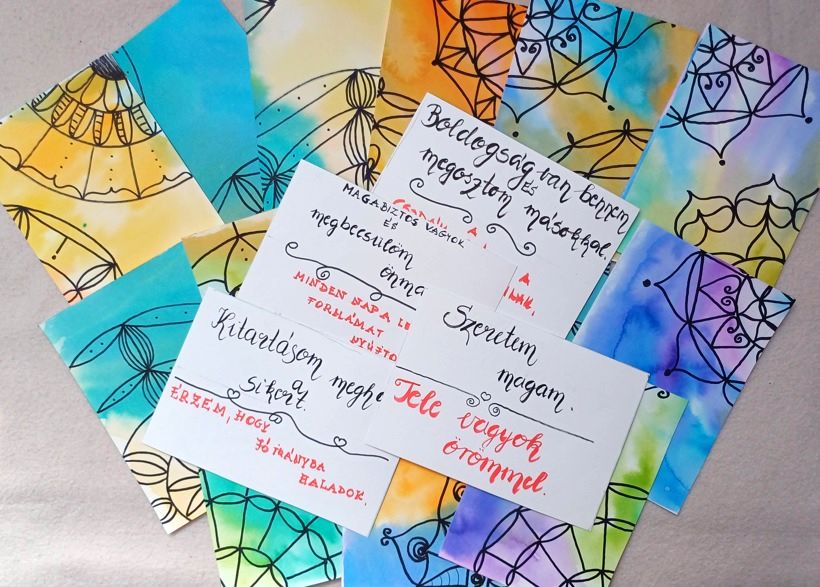 Boldogság van bennem
és
megosztom másokkal.
A
MAGABIZTOS VAGYOK
ÉS
megbecsülöm
önma
MINDEN NAP A LE
FORMÁMAT
NYÚJTO
Kitartásom megho
a
sikert.
ÉRZEM, HOGY
JÓ IRÁNYBA
HALADOK.
Szeretem
magam.
Tele vagyok
örömmel.